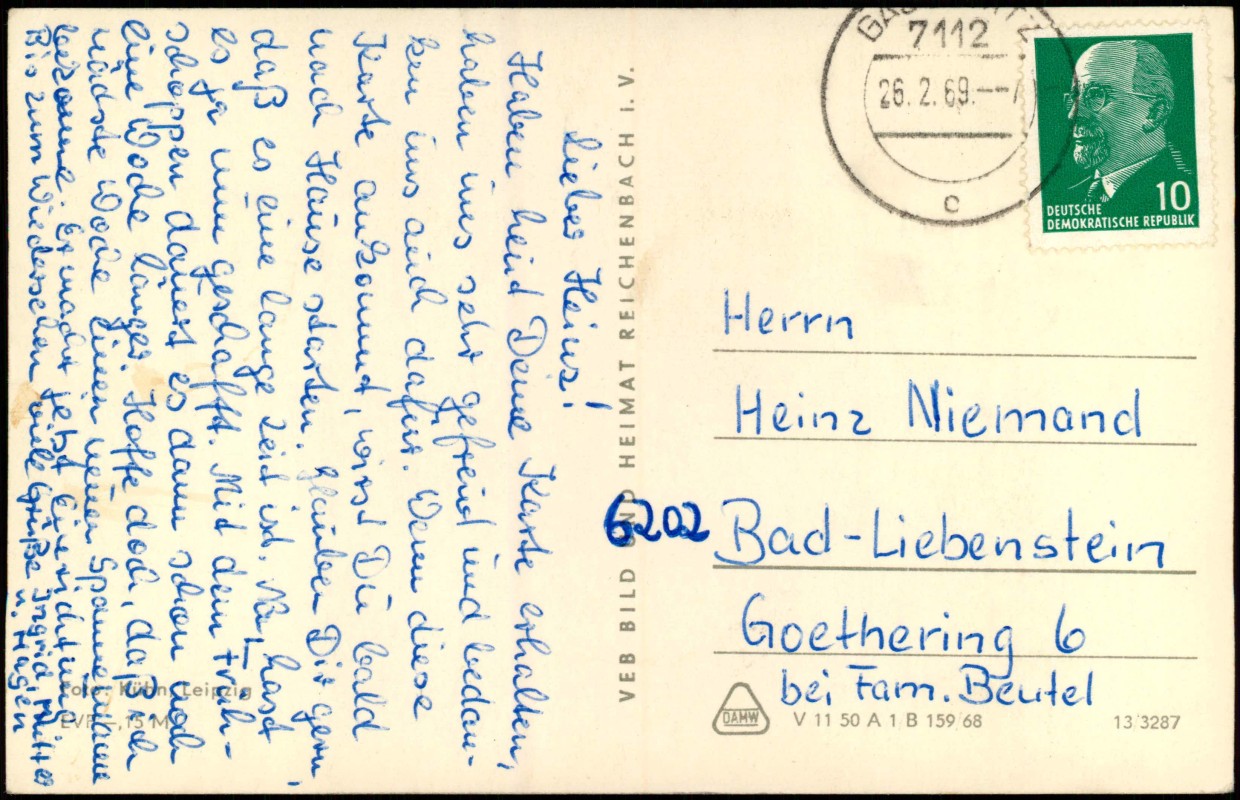 Lieber Heinz!
Haben heut Deine Karte erhalten,
haben uns sehr gefreut und bedan-
ken uns auch dafür. Wenn diese
Karte ankommt, wirst Du bald
nach Hause starten. Glauben Dir gern,
daß es eine lange Zeit ist. Na, hast
es ja nun geschafft. Mit dem Früh-
schoppen dauert es dann schon noch
eine Woche länger. Hoffe doch, daß ich
nächste Woche einen neuen Spannrahmen
bekomme. Er macht jetzt
Bis zum Wiedersehen viele Grüße Ingrid Mutter
u. Hagen
Foto: Kühn, Leipzig
EVP -,15 M
VEB BILD UND HEIMAT REICHENBACH I. V.
7112
26.2.69.--
c
10
DEUTSCHE
DEMOKRATISCHE REPUBLIK
Herrn
Heinz Niemand
6202 Bad-Liebenstein
Goethering 6
bei Fam. Beutel
DAMW
V 11 50 A 1 B 159/68
13/3287